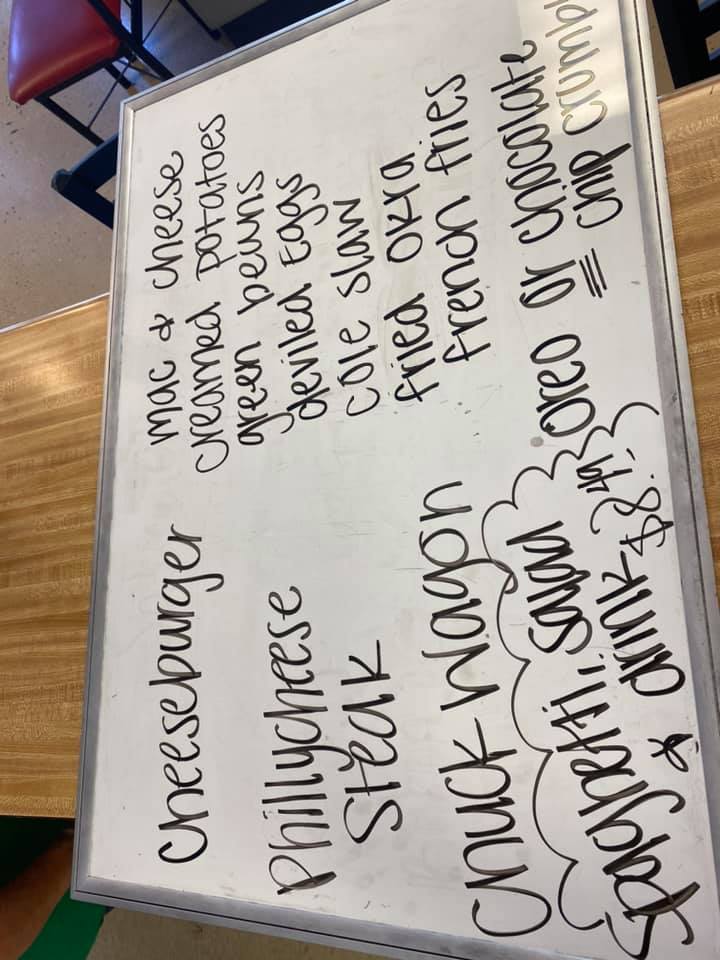 Cheeseburger
Phillycheese
Steak
Chuck Wagon
Spaghetti, salad
& drink $8.49!
mac & cheese
creamed potatoes
green beans
deviled Eggs
cole slaw
fried okra
french fries
Oreo or chocolate
chip